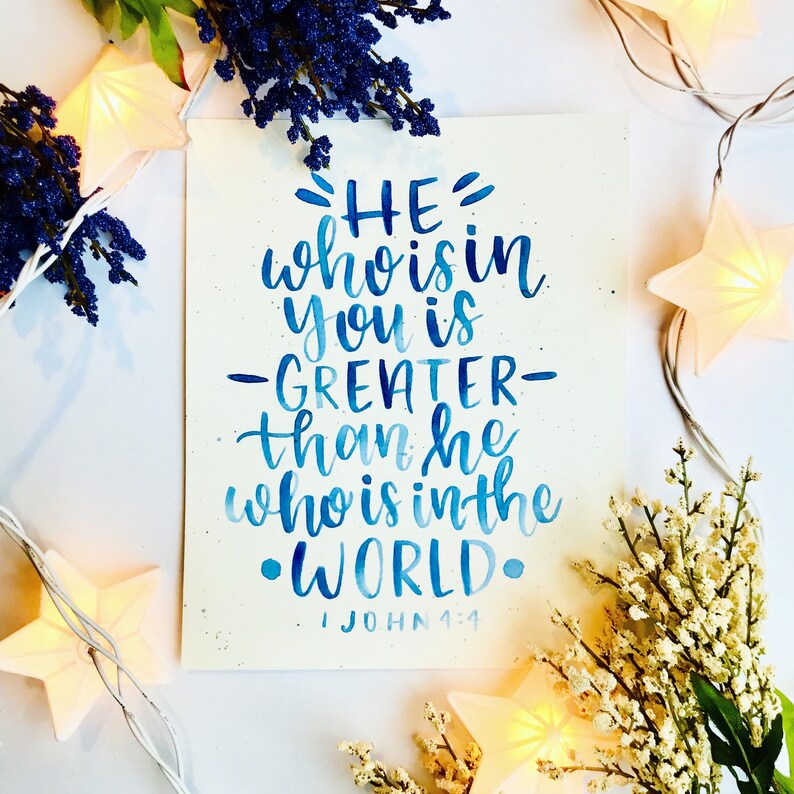 HE
who is in
you is
GREATER
than he
who is in the
WORLD
1 JOHN 4:4